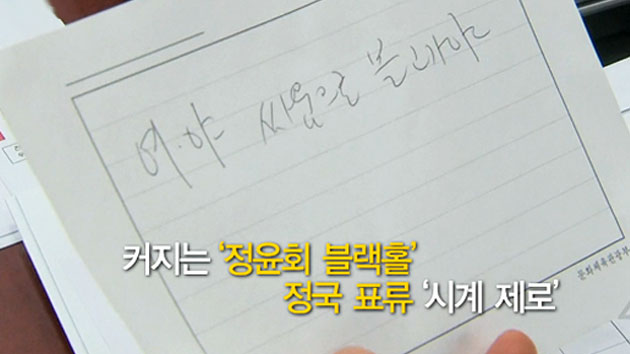 여·야 싸움으로 몰고가야
커지는 '정윤회 블랙홀'
정국 표류 '시계 제로'
문화체육관광부